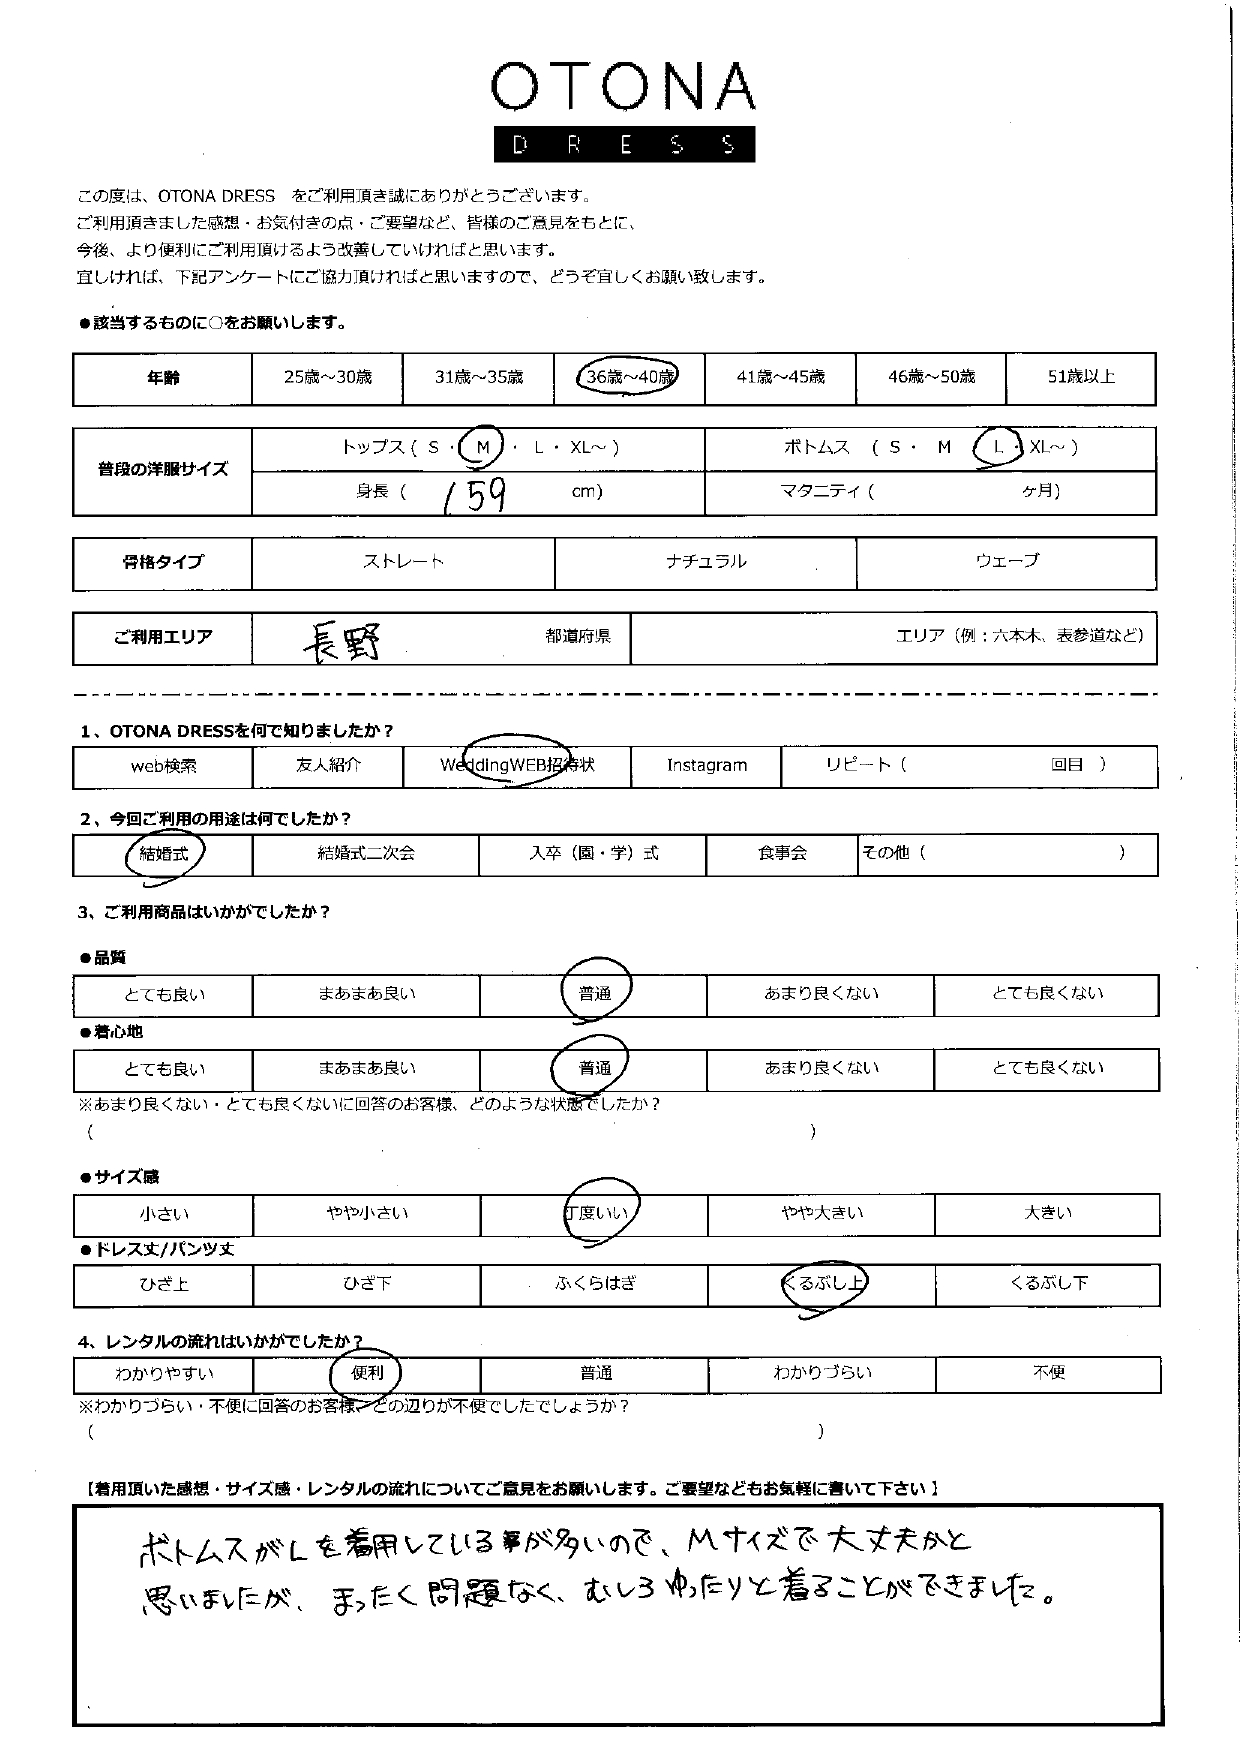 OTONA
DRESS
この度は、OTONA DRESS　をご利用頂き誠にありがとうございます。
ご利用頂きました感想・お気付きの点・ご要望など、皆様のご意見をもとに、
今後、より便利にご利用頂けるよう改善していければと思います。
宜しければ、下記アンケートにご協力頂ければと思いますので、どうぞ宜しくお願い致します。
●該当するものに○をお願いします。
年齢 25歳～30歳 31歳～35歳 36歳～40歳 41歳～45歳 46歳～50歳 51歳以上
普段の洋服サイズ トップス ( S ・ M ・ L ・ XL～ ) ボトムス ( S ・ M L ・ XL～ )
身長 ( 159 cm) マタニティ ( ヶ月)
骨格タイプ ストレート ナチュラル ウェーブ
ご利用エリア 長野 都道府県 エリア（例：六本木、表参道など）
1、OTONA DRESSを何で知りましたか？
web検索 友人紹介 WeddingWEB招待状 Instagram リピート ( 回目 )
2、今回ご利用の用途は何でしたか？
結婚式 結婚式二次会 入卒（園・学）式 食事会 その他 ( )
3、ご利用商品はいかがでしたか？
●品質
とても良い まあまあ良い 普通 あまり良くない とても良くない
●着心地
とても良い まあまあ良い 普通 あまり良くない とても良くない
※あまり良くない・とても良くないに回答のお客様、どのような状態でしたか？
( )
●サイズ感
小さい やや小さい 丁度いい やや大きい 大きい
●ドレス丈/パンツ丈
ひざ上 ひざ下 ふくらはぎ くるぶし上 くるぶし下
4、レンタルの流れはいかがでしたか？
わかりやすい 便利 普通 わかりづらい 不便
※わかりづらい・不便に回答のお客様、どの辺りが不便でしたでしょうか？
( )
【着用頂いた感想・サイズ感・レンタルの流れについてご意見をお願いします。ご要望などもお気軽に書いて下さい】
ボトムスがLを着用している事が多いので、Mサイズで大丈夫かと
思いましたが、まったく問題なく、むしろゆったりと着ることができました。